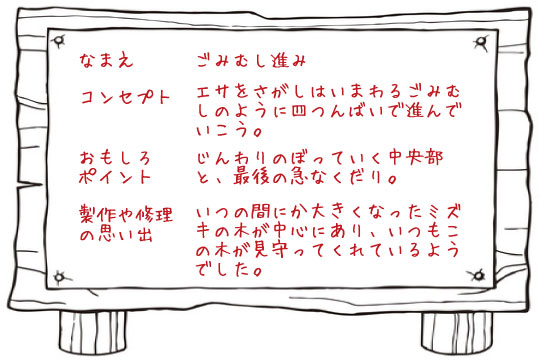 なまえ ごみむし進み
コンセプト エサをさがしはいまわるごみむ
しのように四つんばいで進んで
いこう。
おもしろ じんわりのぼっていく中央部
ポイント と、最後の急なくだり。
製作や修理 いつの間にか大きくなったミズ
の思い出 キの木が中心にあり、いつもこ
の木が見守ってくれているよう
でした。